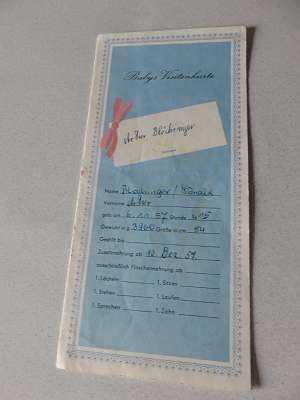 Babys Visitenkarte
Artur Blöchinger
Name Blöchinger /
Vorname Artur
geb. am 6. 11. 57 Stunde 4 15
Gewicht in g 3900 Größe in cm 54
Gestillt bis
Zusatznahrung ab 10. Dez. 57.
ausschließlich Flaschennahrung ab
1. Lächeln 1. Sitzen
1. Stehen 1. Laufen
1. Sprechen 1. Zahn